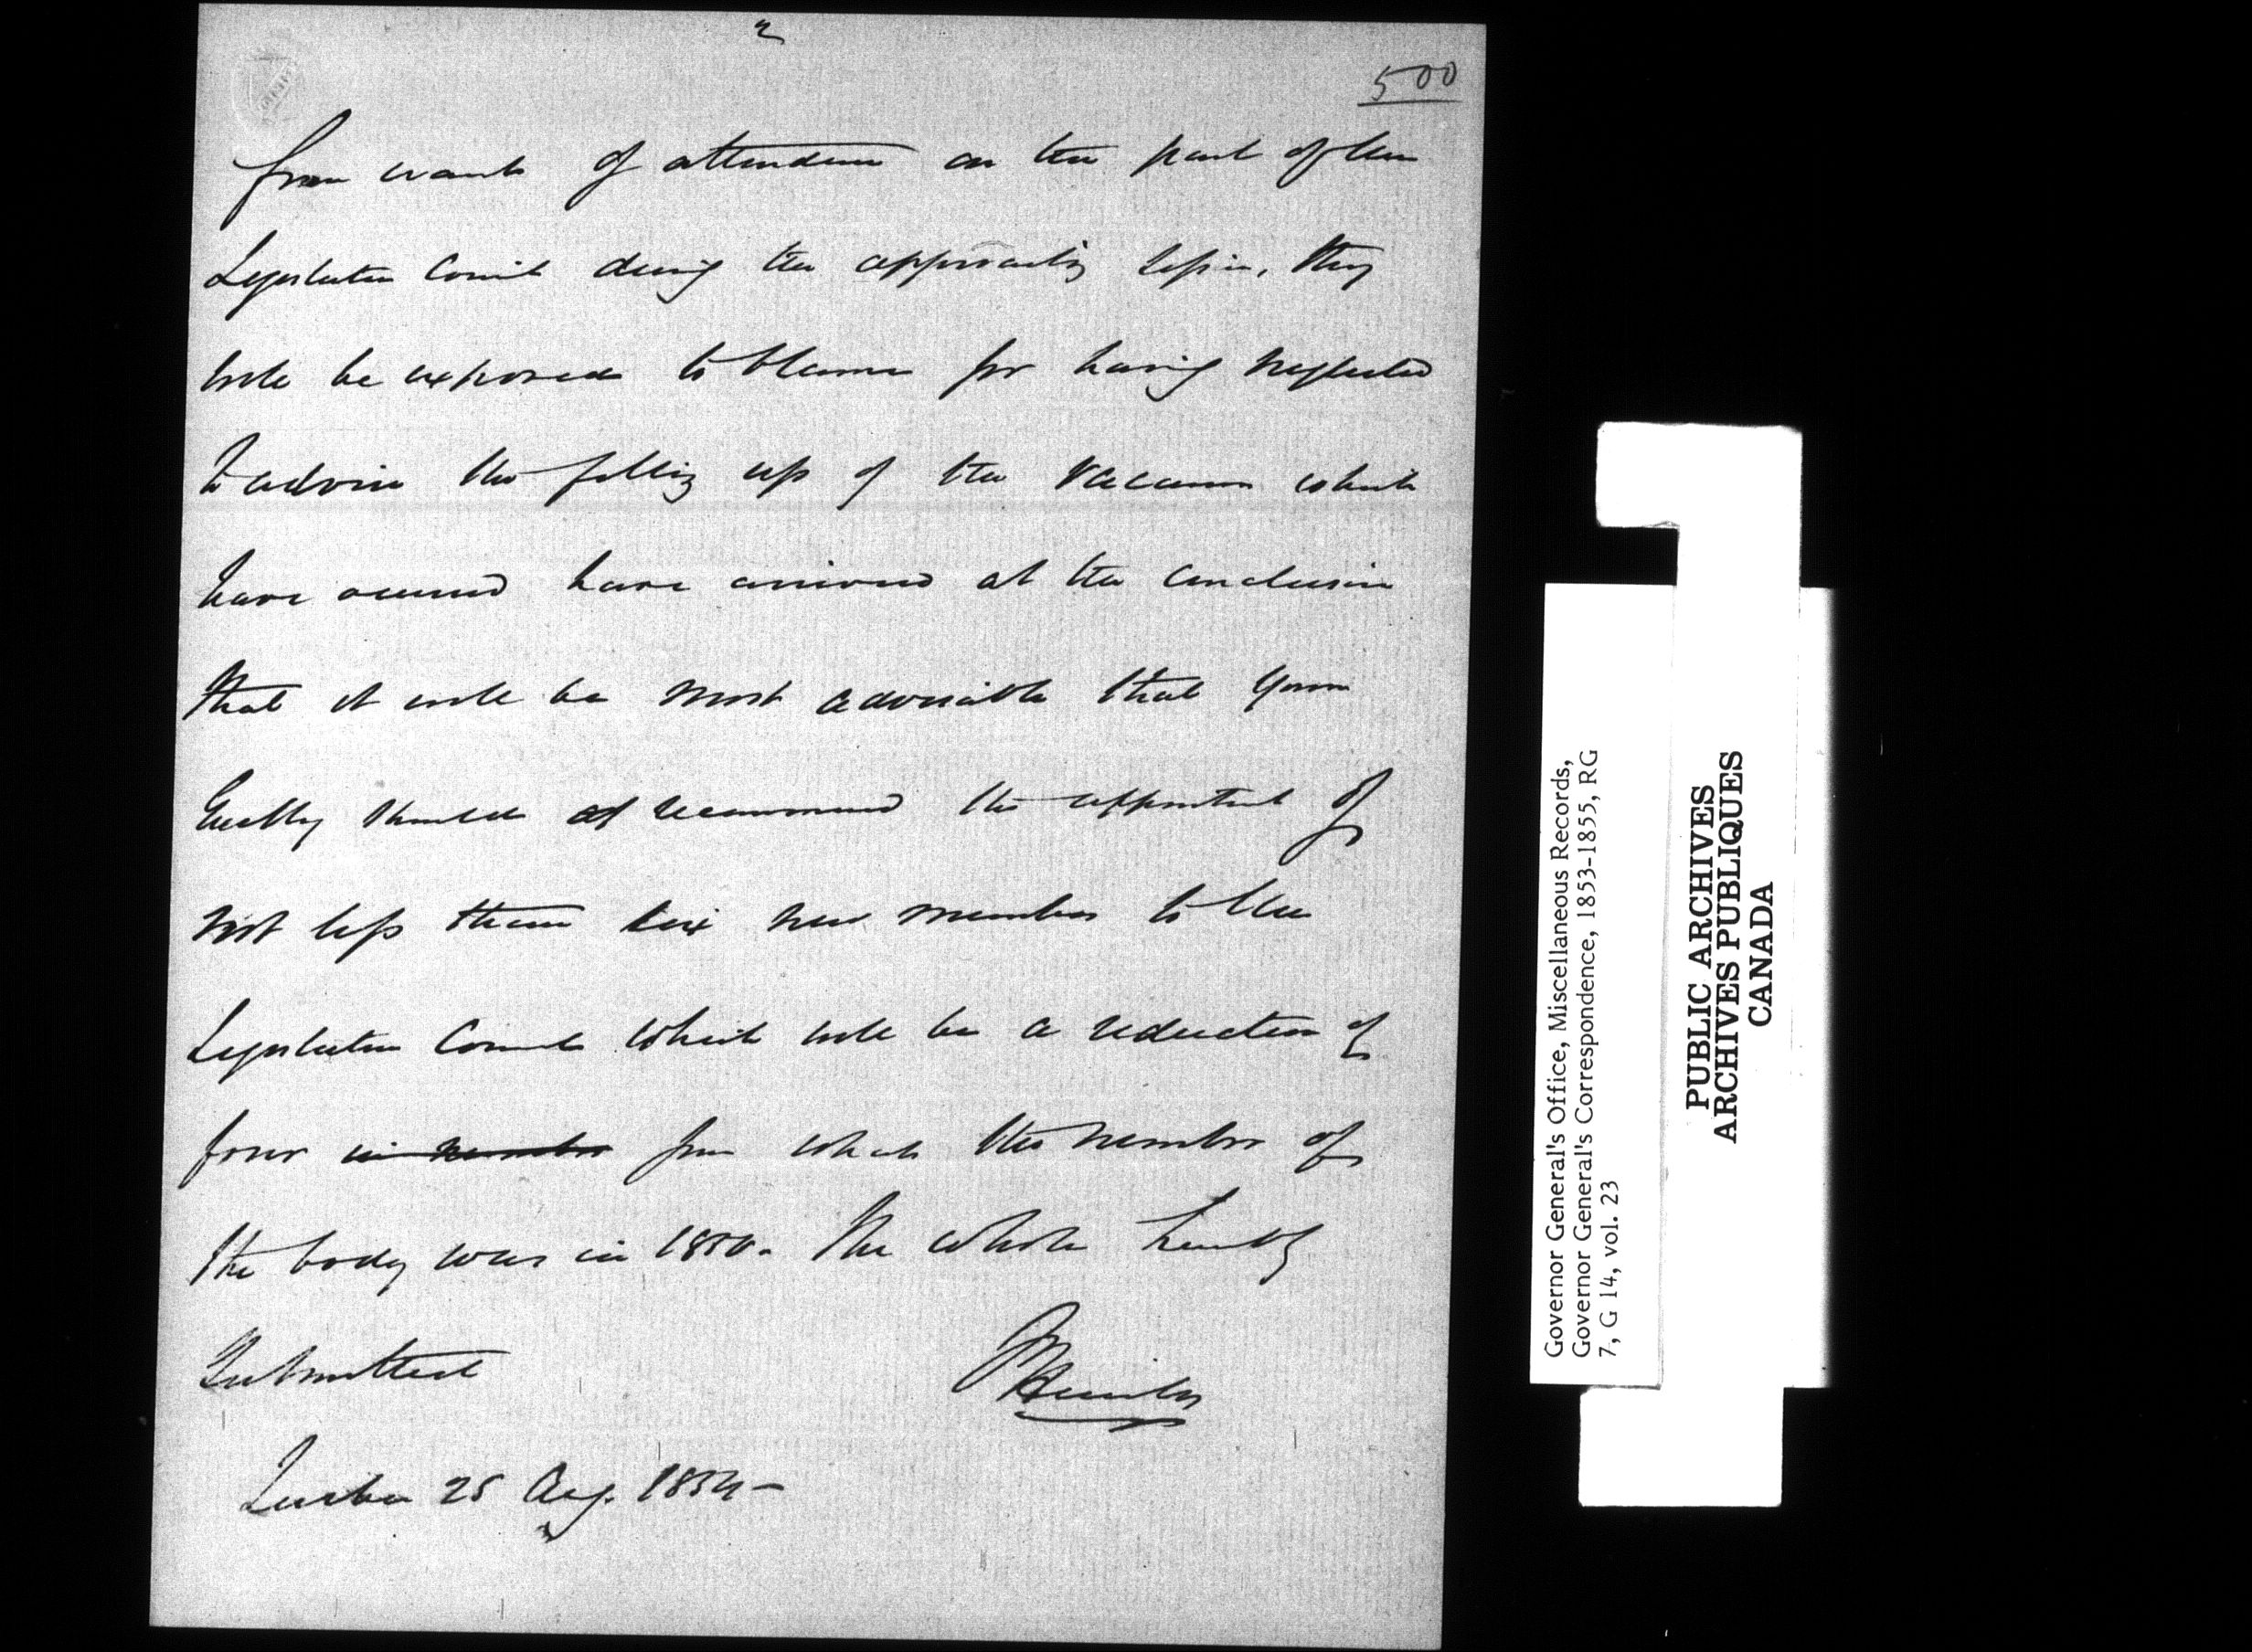 2
500
from want of attendance on the part of the
Legislative Council during the approaching Session, they
will be exposed to blame for having neglected
to advise the filling up of the vacancies which
have occurred have arrived at the conclusion
that it will be most advisable that Your
Excellency should recommend the appointment of
not less than six new members to the
Legislative Council which will be a reduction of
four in number from what the number of
the body was in 1850. The whole humbly
Submitted
FHincks
Quebec 25 Aug. 1854 -
Governor General's Office, Miscellaneous Records,
Governor General's Correspondence, 1853-1855, RG
7, G 14, vol. 23
PUBLIC ARCHIVES
ARCHIVES PUBLIQUES
CANADA